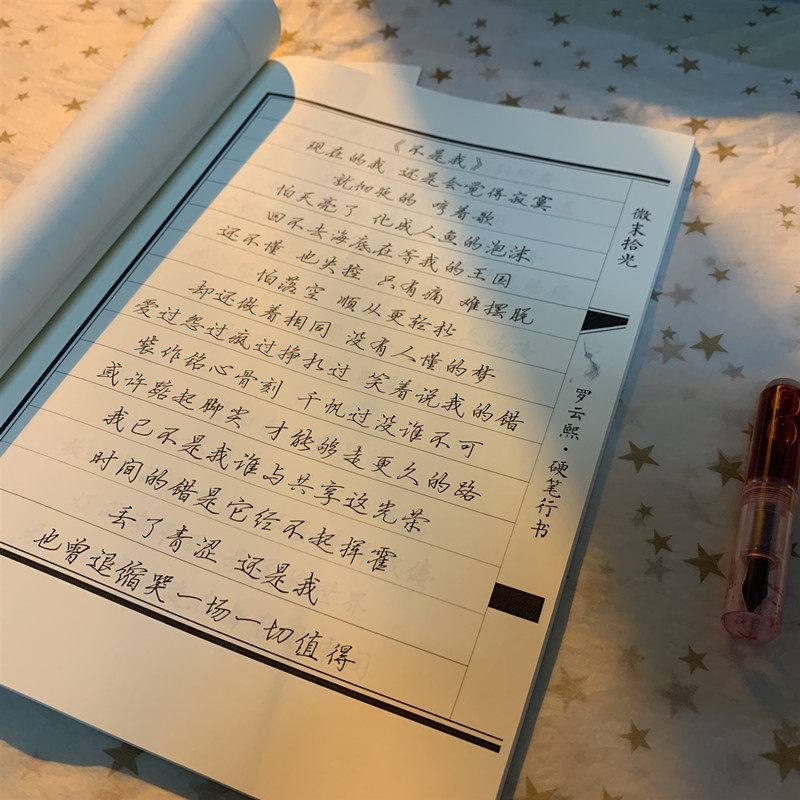 《不是我》
现在的我 还是会觉得寂寞
就彻夜的 哼着歌
怕天亮了 化成人鱼的泡沫
回不去海底在等我的王国
还不懂 也失控 只有痛 难摆脱
怕落空 顺从更轻松
却还做着相同 没有人懂的梦
爱过怨过疯过挣扎过 笑着说我的错
装作铭心骨刻 千帆过没谁不可
或许踮起脚尖 才能够走更久的路
我已不是我谁与共享这光荣
时间的错是它经不起挥霍
丢了青涩 还是我
也曾退缩哭一场一切值得
微末拾光
罗云熙·硬笔行书